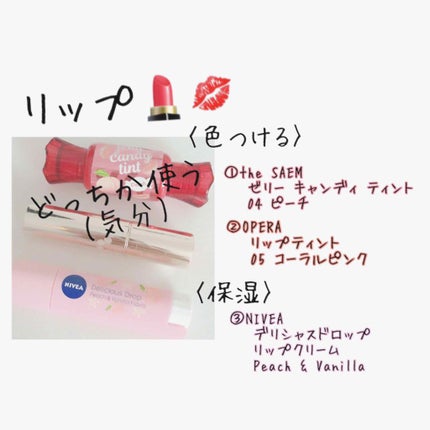 リップ
〈色つける〉
①the SAEM
ゼリー キャンディ ティント
04 ピーチ
②OPERA
リップティント
05 コーラルピンク
どっちか使う
(気分)
〈保湿〉
③NIVEA
デリシャスドロップ
リップクリーム
Peach & Vanilla
candy
tint
NIVEA
Delicious Drop